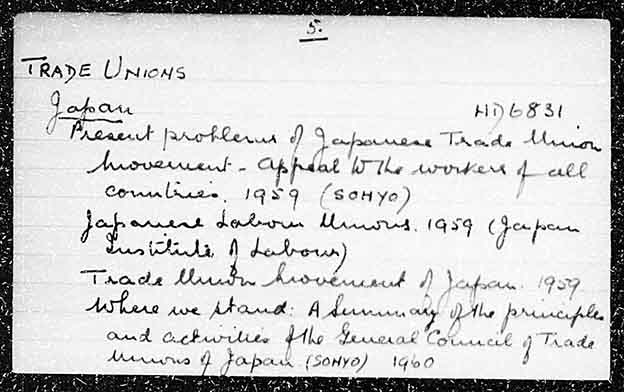 5.
TRADE UNIONS
Japan HD6831
Present problems of Japanese Trade Union
Movement - Appeal to the workers of all
countries. 1959 (SOHYO)
Japanese Labour Unions. 1959 (Japan
Institute of Labour)
Trade Union Movement of Japan. 1959
Where we stand: A Summary of the principles
and activities of the General Council of Trade
Unions of Japan (SOHYO) 1960